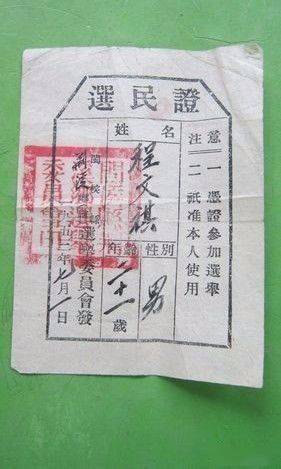 證民選
注意
一 憑證參加選舉
二 祇准本人使用
姓名
程文祺
性別
男
年齡
二十一歲
選舉委員會發
一九五三年七月一日